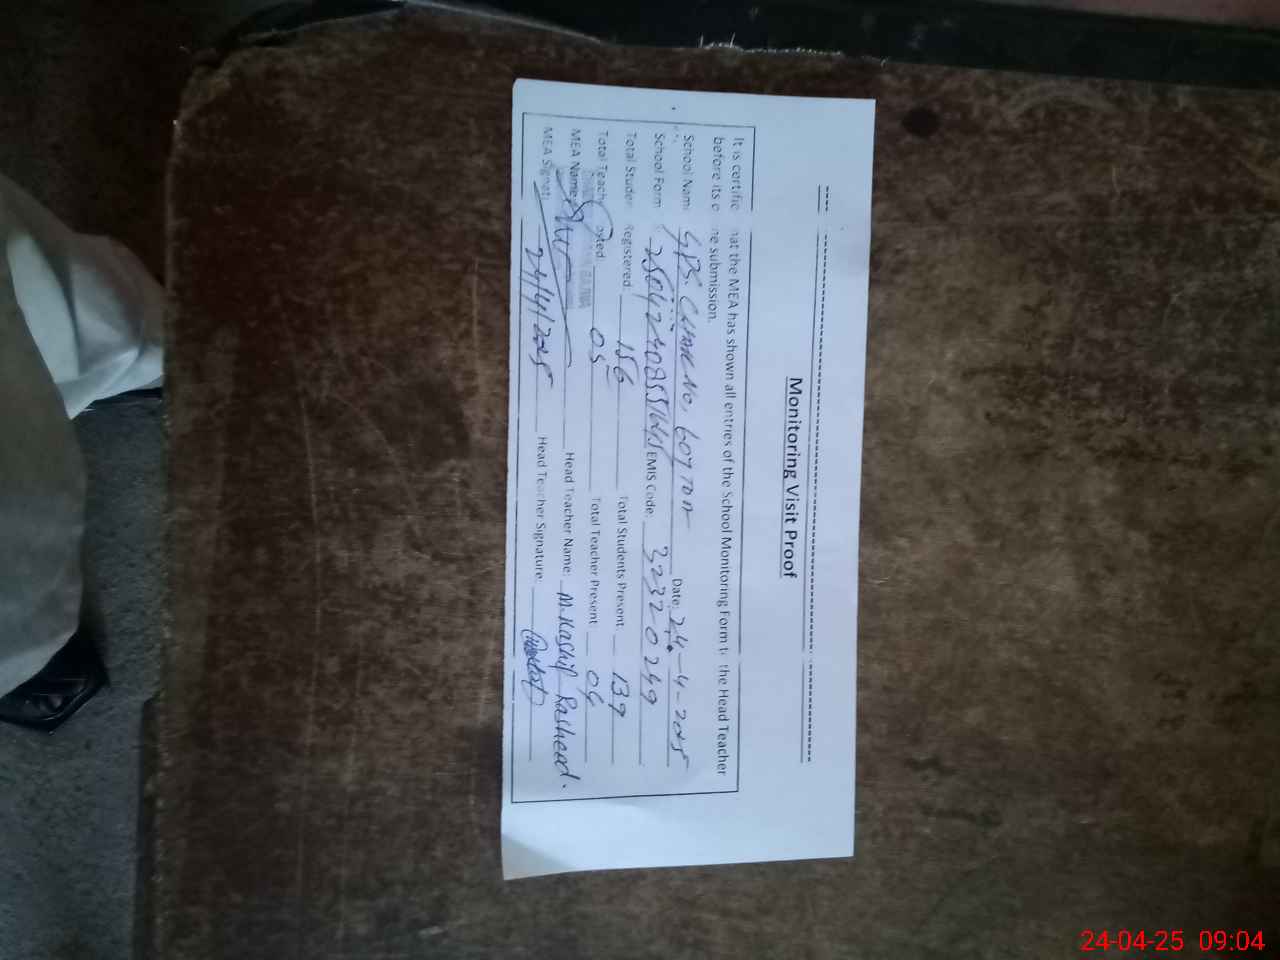 Monitoring Visit Proof
It is certifie hat the MEA has shown all entries of the School Monitoring Form t the Head Teacher
before its o ne submission.
School Name GPS. Chak No, 607 TDA Date: 24-4-2025
School Form EMIS Code: 32320249
Total Studen Registered: 156 Total Students Present 139
Total Teach osted: 05 Total Teacher Present 04
MEA Name Head Teacher Name: M. Kashif Rasheed.
MEA Signat 24/4/2025 Head Teacher Signature:
24-04-25 09:04